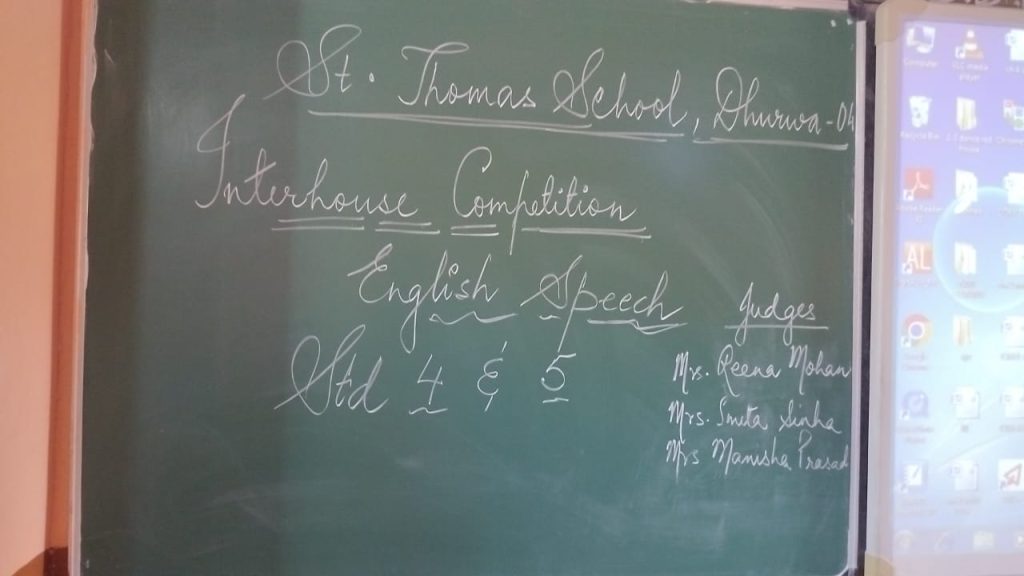 St. Thomas School, Dhurwa-04
Interhouse Competition
English Speech
Std 4 & 5
Judges
Mrs. Reena Mohan
Mrs. Smita Sinha
Mrs Manisha Prasad
Computer
VLC media
player
Recycle Bin
AL